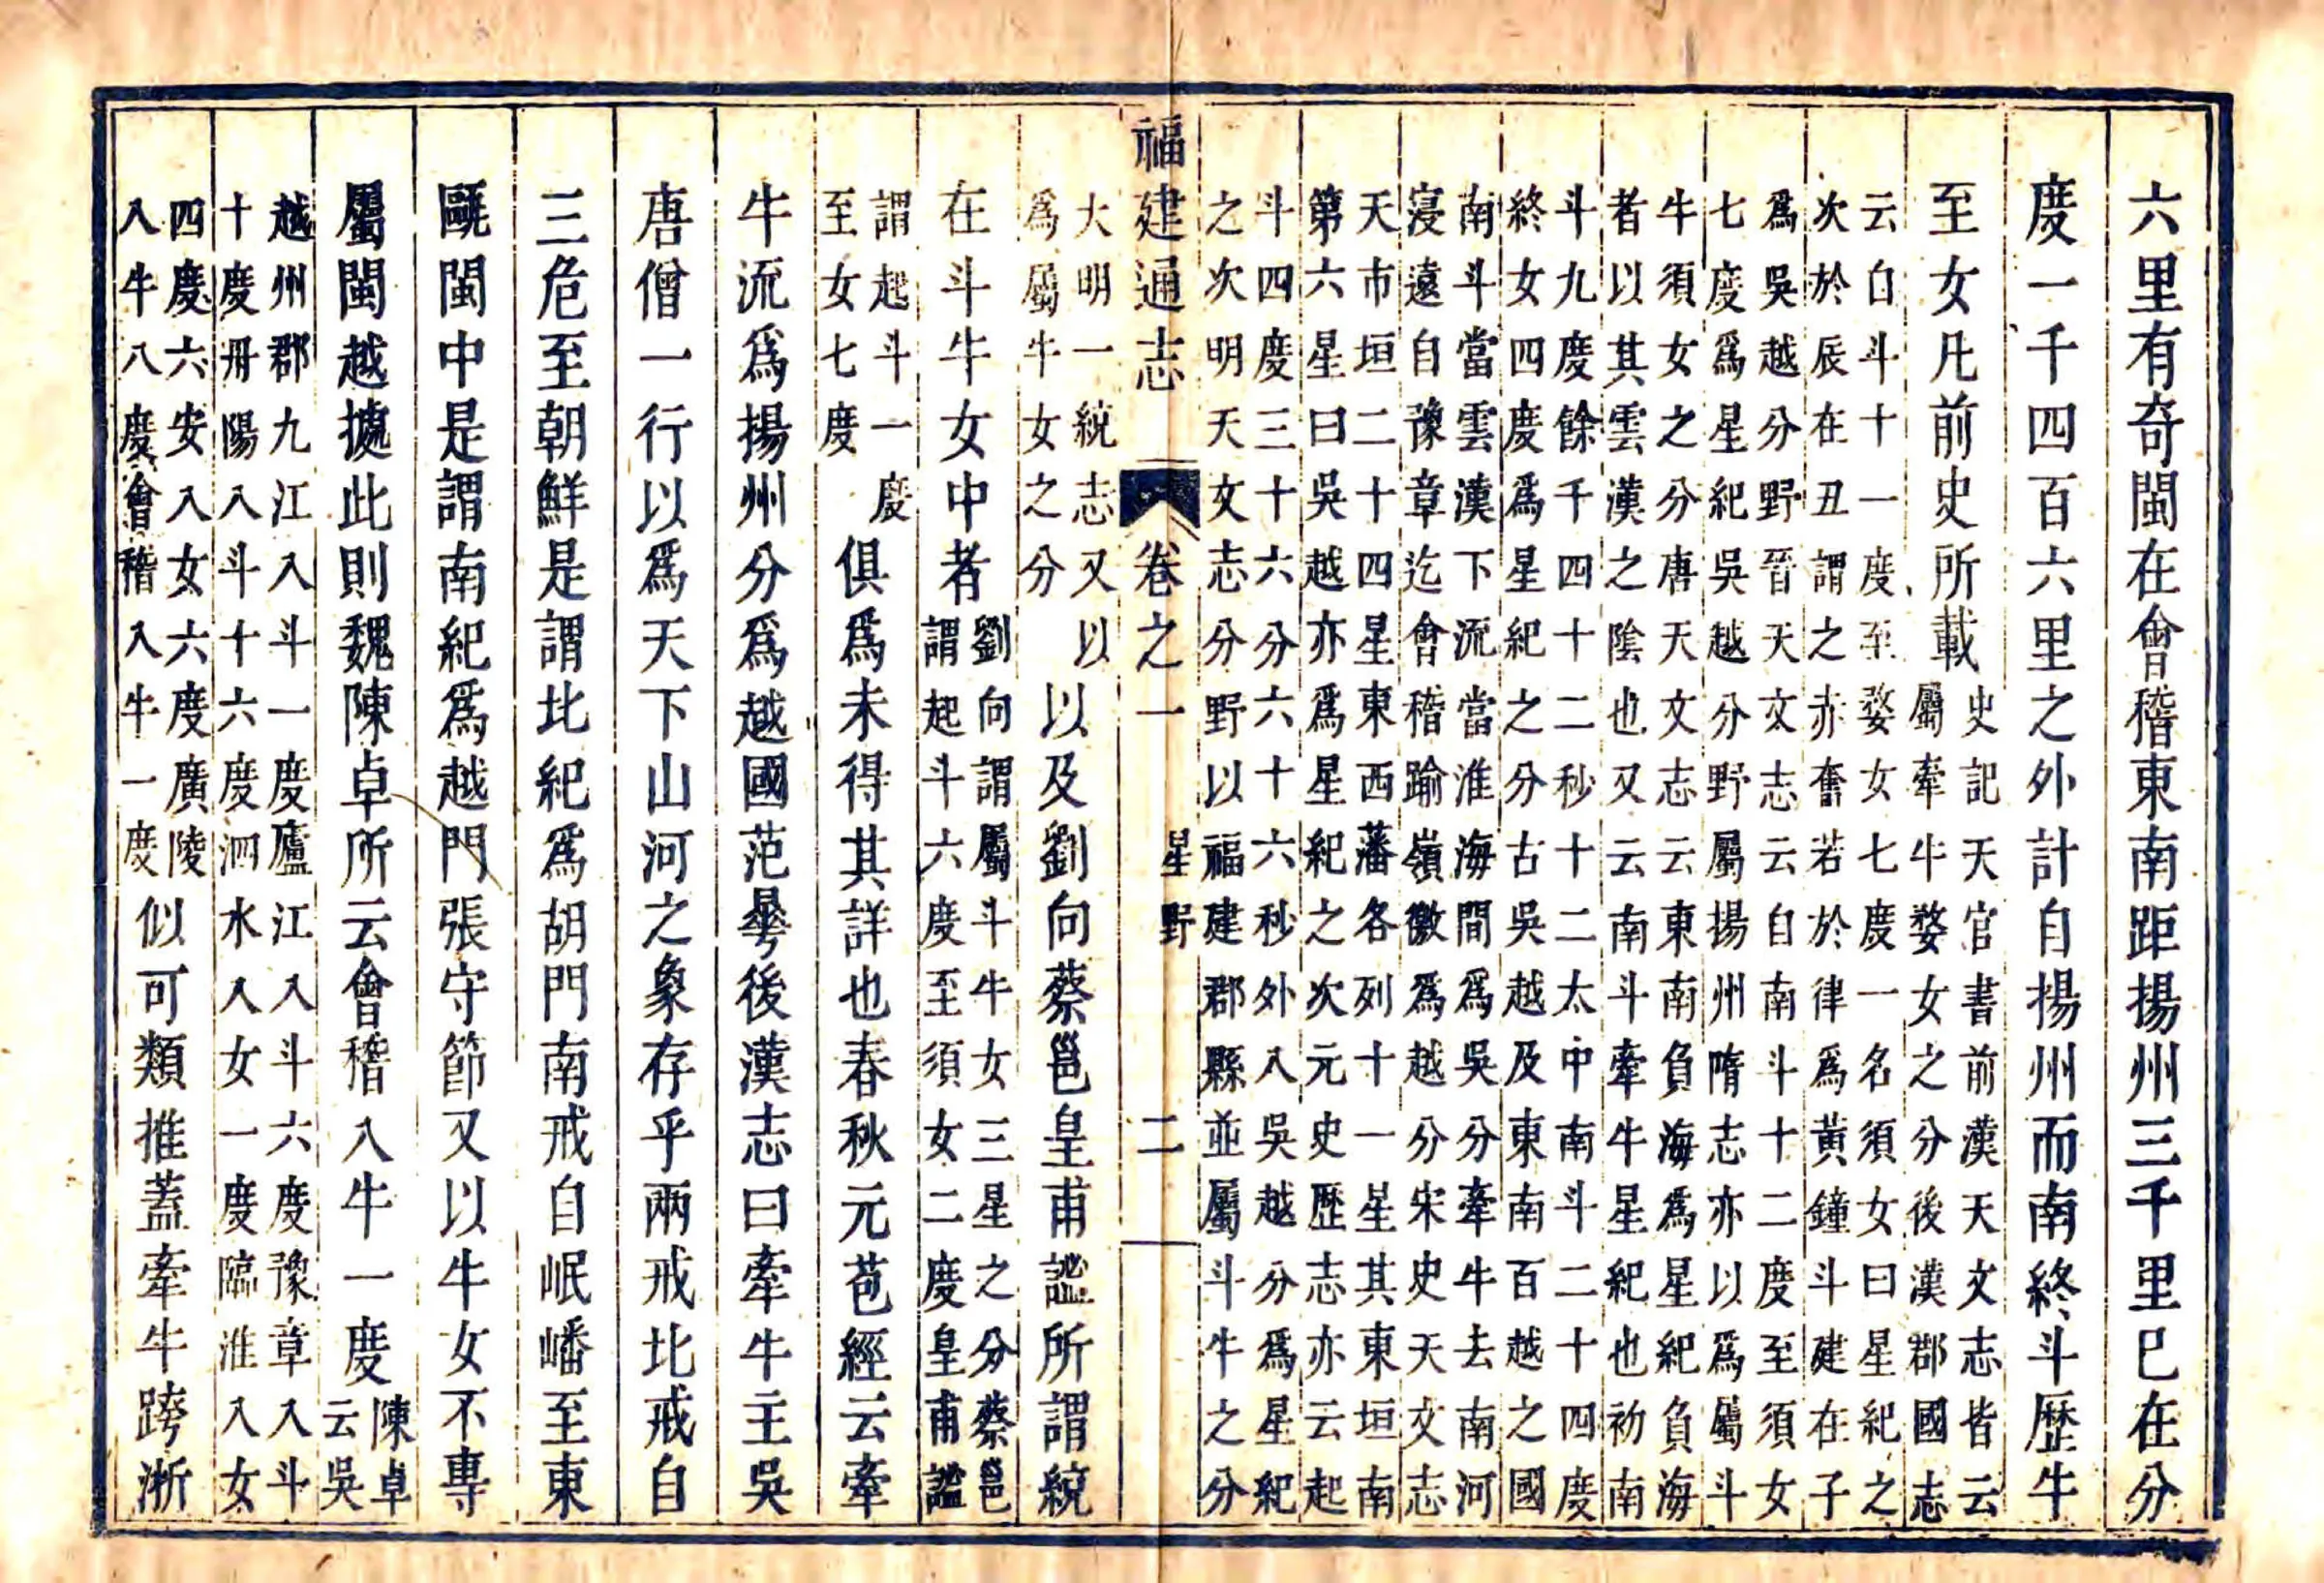 六里有奇閩在會稽東南距揚州三千里巳在分
度一千四百六里之外計自揚州而南終斗歷牛
至女凡前史所載
史記天官書前漢天文志皆云
屬牽牛婺女之分後漢郡國志
云自斗十一度至婺女七度一名須女曰星紀之
次於辰在丑謂之亦奮若於律爲黃鐘斗建在子
爲吳越分野晉天文志云自南斗十二度至須女
七度爲星紀吳越分野屬揚州隋志亦以爲屬斗
牛須女之分唐天文志云東南負海爲星紀負海
者以其雲漢之陰也又云南斗牽牛星紀也初南
斗九度餘千四十二秒十二太中南斗二十四度
終女四度爲星紀之分古吳越及東南百越之國
南斗當雲漢下流當淮海間爲吳分牽牛去南河
寖遠自豫章迄會稽踰嶺徼爲越分宋史天文志
天市垣二十四星東西藩各列十一星其東垣南
第六星曰吳越亦爲星紀之次元史歷志亦云起
斗四度三十六分六十六秒外入吳越分爲星紀
之次明天文志分野以福建郡縣並屬斗牛之分
福建通志 卷之一 星野 二
大明一統志又以
爲屬牛女之分
以及劉向蔡邕皇甫謐所謂統
在斗牛女中者
劉向謂屬斗牛女三星之分蔡邕
謂起斗六度至須女二度皇甫謐
謂起斗一度
至女七度
俱爲未得其詳也春秋元苞經云牽
牛流爲揚州分爲越國范曅後漢志曰牽牛主吳
唐僧一行以爲天下山河之象存乎兩戒北戒自
三危至朝鮮是謂北紀爲胡門南戒自岷嶓至東
甌閩中是謂南紀爲越門張守節又以牛女不專
屬閩越據此則魏陳卓所云會稽入牛一度
陳卓
云吳
越州郡九江入斗一度廬江入斗六度豫章入斗
十度丹陽入斗十六度泗水入女一度臨淮入女
四度六安入女六度廣陵
入牛八度會稽入牛一度
似可類推蓋牽牛跨淅